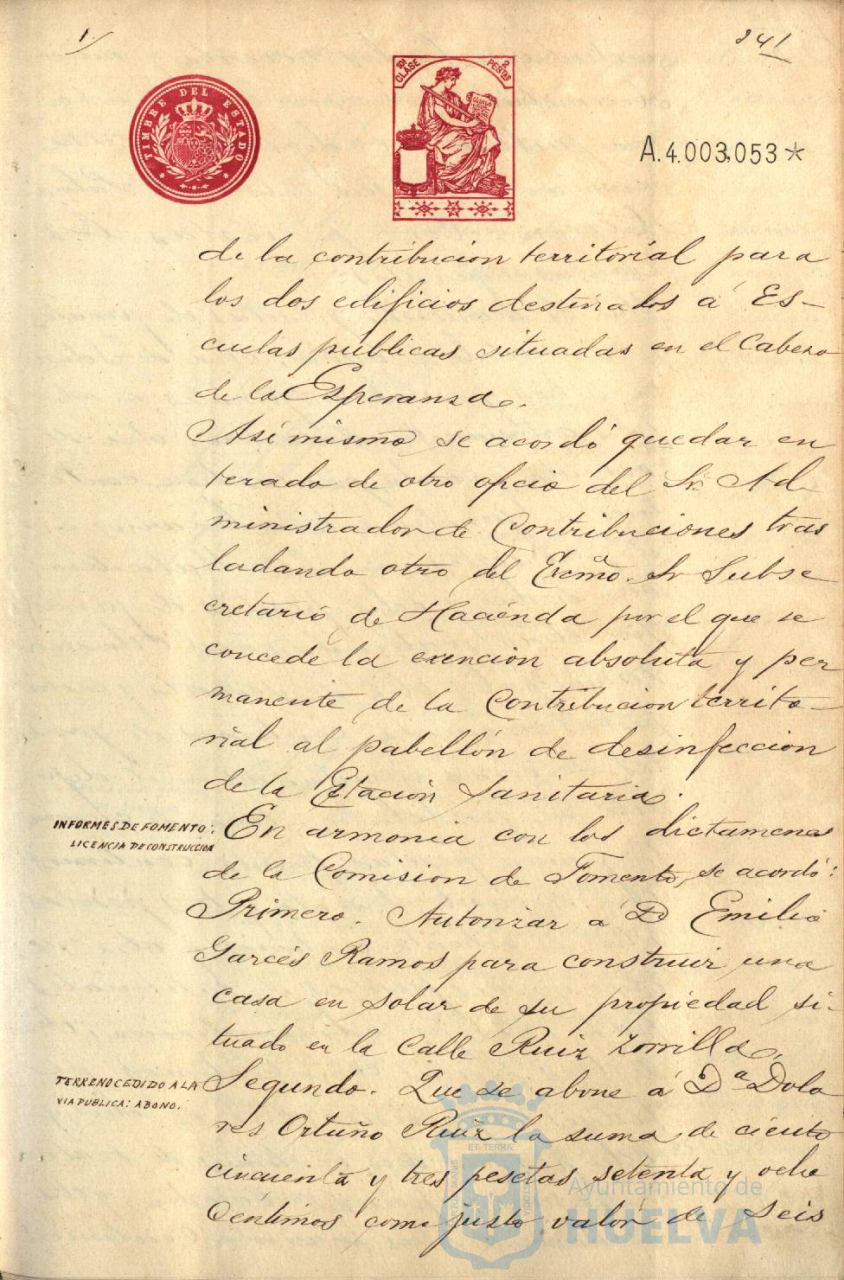 1/
241
TIMBRE DEL ESTADO
10ª CLASE 2 PESTAS
A.4.003,053*
de la contribucion territorial para
los dos edificios destinados á Es-
cuelas públicas situadas en el Cabezo
de la Esperanza.
Asímismo se acordó quedar en
terado de otro oficio del Sr. Ad-
ministrador de Contribuciones tras
ladando otro del Excmo. Sr Subse
cretario de Hacienda por el que se
concede la exencion absoluta y per
manente de la Contribucion territo-
rial al pabellón de desinfeccion
de la Estación Sanitaria.
INFORMES DE FOMENTO:
LICENCIA DE CONSTRUCCION
En armonia con los dictamenes
de la Comision de Fomento, se acordó:
Primero. Autorizar á D Emilio
Garcés Ramos para construir una
casa en solar de su propiedad si-
tuado en la Calle Ruiz Zorrilla.
TERRENO CEDIDO A LA
VIA PUBLICA: ABONO.
Segundo. Que se abone á Dª Dolo
res Ortuño Ruiz la suma de ciento
cincuenta y tres pesetas setenta y ocho
Céntimos como justo valor de Seis
Ayuntamiento de
HUELVA